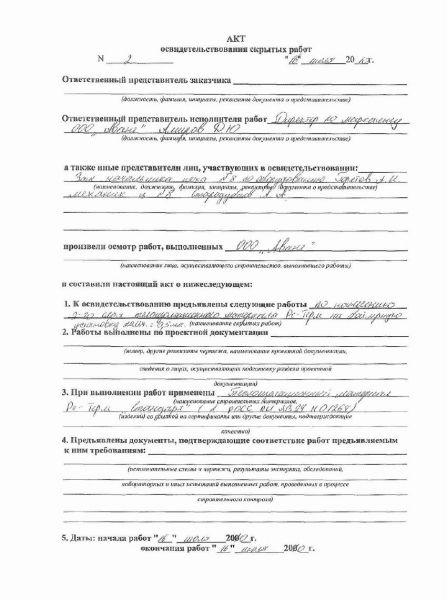 АКТ
освидетельствования скрытых работ
N 2 "16" июля 20
Ответственный представитель заказчика
(должность, фамилия, инициалы, реквизиты документа о представительстве)
Ответственный представитель исполнителя работ Директор по маркетингу
ООО "Аванг" Д.Ю.
(должность, фамилия, инициалы, реквизиты документа о представительстве)
а также иные представители лиц, участвующих в освидетельствовании:
Зам начальника цеха №8 по оборудованию А.И.
(наименование, должность, фамилия, инициалы, реквизиты документа о представительстве)
механик ц. А.А.
произвели осмотр работ, выполненных ООО "Аванг"
(наименование лица, осуществляющего строительство, выполнившего работы)
и составили настоящий акт о нижеследующем:
1. К освидетельствованию предъявлены следующие работы по нанесению
2-го слоя теплоизоляционного материала Ре-Терм на бойлерную
установку
(наименование скрытых работ)
2. Работы выполнены по проектной документации
(номер, другие реквизиты чертежа, наименование проектной документации,
сведения о лицах, осуществляющих подготовку раздела проектной
документации)
3. При выполнении работ применены Теплоизоляционный материал
(наименование строительных материалов,
Ре-Терм "Стандарт"
(изделий) со ссылкой на сертификаты или другие документы, подтверждающие
качество)
4. Предъявлены документы, подтверждающие соответствие работ предъявляемым
к ним требованиям:
(исполнительные схемы и чертежи, результаты экспертиз, обследований,
лабораторных и иных испытаний выполненных работ, проведенных в процессе
строительного контроля)
5. Даты: начала работ "16" июля 20 г.
окончания работ "16" июля 20 г.